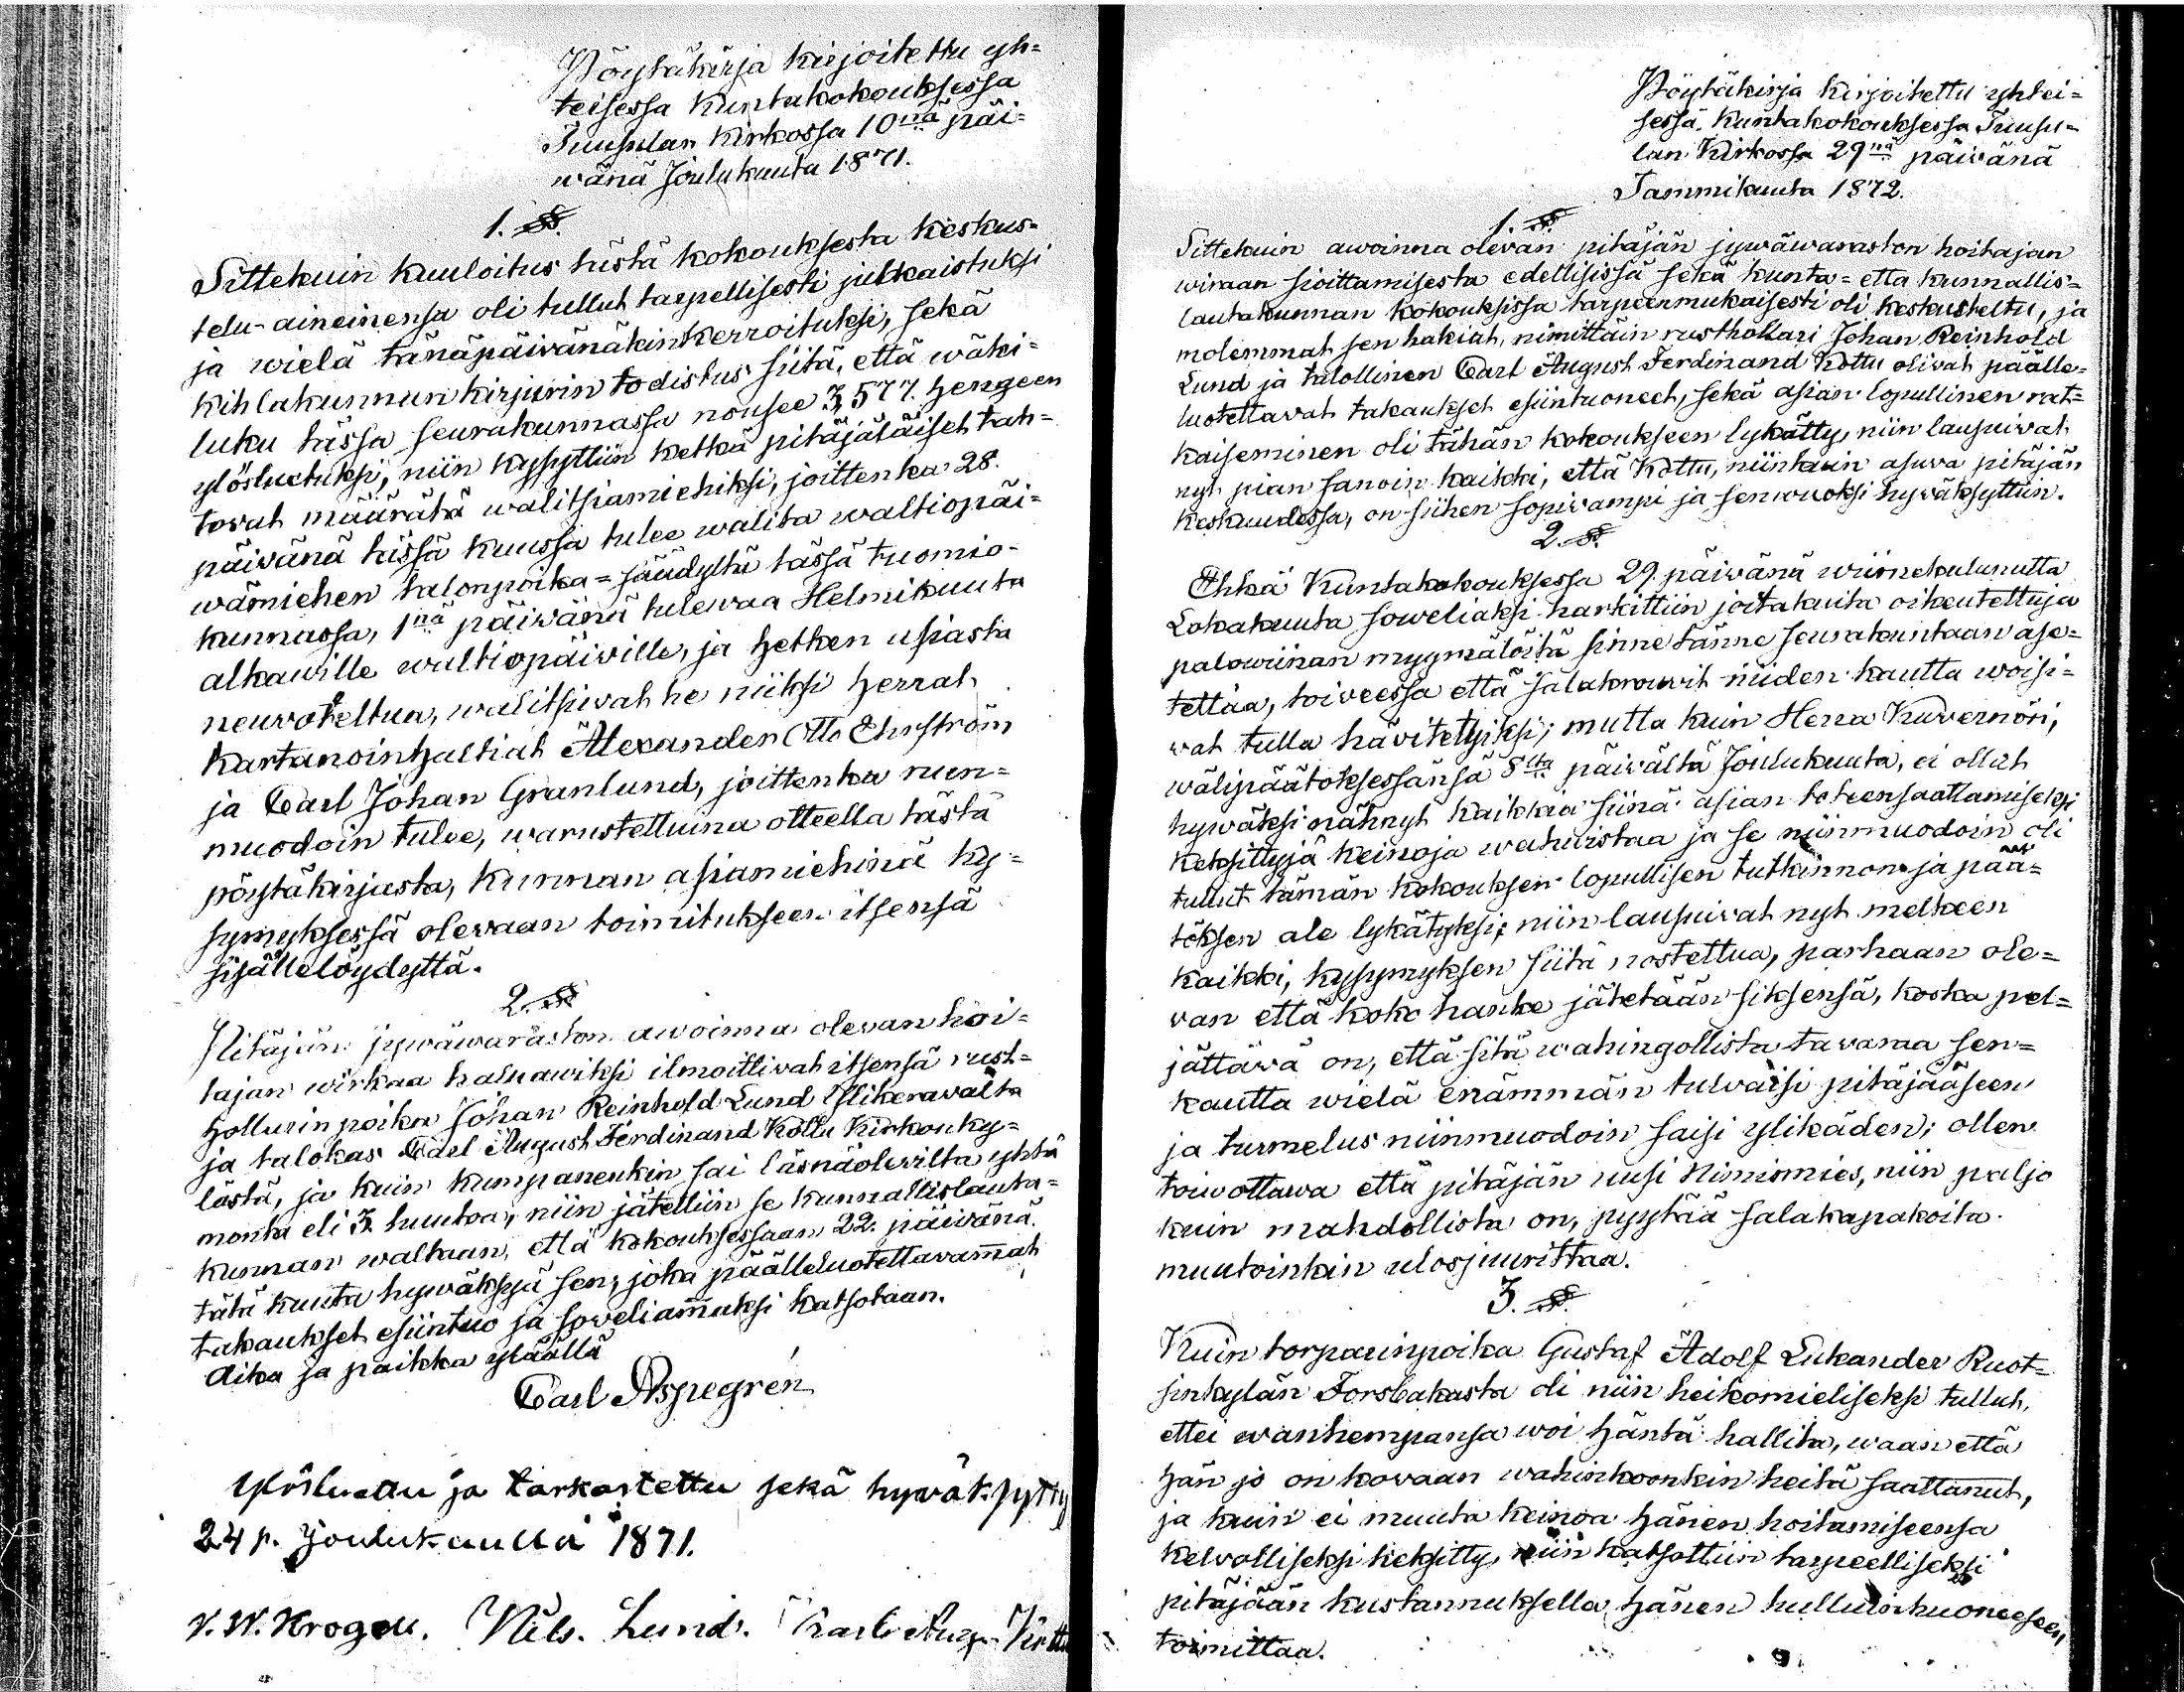 Pöytäkirja kirjoitettu yh=
teisessa Kuntakokouksessa
Tuusulan Kirkossa 10nä päi=
wänä Joulukuuta 1871.
1. §.
Sittekuin kuuloitus tästä kokouksesta keskus=
telu-aineinensa oli tullut tarpellisesti julkaistuksi
ja wielä tänäpäivänäkin kerroituksi, sekä
kihlakunnan kirjurin todistus siitä, että wäki=
luku tässa seurakunnassa nousee 3,577. hengeen
ylösluetuksi, niin kysyttiin ketkä pitäjäläiset tah=
tovat määrätä walitsiamiehiksi, joittenka 28.
päivänä tässä kuussa tulee walita waltiopäi=
wämiehen talonpoika=säädyltä tässä tuomio-
kunnassa, 1nä päivänä tulewaa Helmikuuta
alkawille waltiopäiville, ja hetken asiasta
neuvoteltua, walitsivat he niiksi herrat
Kartanoinhaltiat Alexander Otto Ehrström
ja Carl Johan Granlund, joittenka niin=
muodoin tulee, warustettuina otteella tästä
pöytäkirjasta, kunnan asiamiehinä ky=
symyksessä olevaan toimitukseen itsensä
sisällelöydyttä.
2. §
Pitäjän jywäwaraston awoinna olevan hoi=
tajan wirkaa haluawiksi ilmoittivat itsensä rust=
hollarin poika Johan Reinhold Lund Ylikeravalta
ja talokas Carl August Ferdinand Kottu Kirkonky=
lästä, ja kuin kumpanenkin sai läsnäolevilta yhtä
monta eli 3. huutoa, niin jätettiin se kunnallislauta=
kunnan waltaan, että kokouksessaan 22. päivänä
tätä kuuta hywäksyä sen, joka päälleluotettavam̅at
takaukset esiintuo ja soveliam̅aksi katsotaan.
Aika ja paikka ylläällä
Carl Aspegrén
Ylösluettu ja tarkastettu sekä hyväksytty
24 p. Joulukuulla 1871.
V. W. Krogell. Nils. Lund. Karl Aug. Kottu
Pöytäkirja kirjoitettu yhtei=
sessä Kuntakokouksessa Tuusu=
lan Kirkossa 29nä päivänä
Tammikuuta 1872.
1. §.
Sittekuin awoinna olevan pitäjän jywäwaraston hoitajan
wiraan sioittamisesta edellisissä sekä kunta= että kunnallis=
lautakunnan kokouksissa tarpeenmukaisesti oli keskusteltu, ja
molemmat sen hakiat, nimittäin rusthollari Johan Reinhold
Lund ja talollinen Carl August Ferdinand Kottu olivat päälle=
luotettavat takaukset esiintuoneet, sekä asian lopullinen rat=
kaiseminen oli tähän kokoukseen lykätty, niin lausuivat
nyt pian sanoin kaikki, että Kottu, niinkuin asuva pitäjän
keskuudessa, on siihen sopivampi ja senwuoksi hyväksyttiin.
2. §.
Ehkä Kuntakokouksessa 29. päivänä wiimekulunutta
Lokakuuta soweliaksi harkittiin joitakuita oikeutettuja
palowiinan myymälöitä sinne tänne seurakuntaan ase=
tettaa, toiveessa että salakrouvit niiden kautta woisi=
vat tulla hävitetyiksi; mutta kuin Herra Kuvernöri,
wälipäätöksessänsä 8lta päivältä Joulukuuta, ei ollut
hywäksi nähnyt kaikkia siinä asian toteensaattamiseksi
keksittyjä keinoja wahwistaa ja se niinmuodoin oli
tullut tämän kokouksen lopullisen tutkinnon ja pää=
töksen ale lykätyksi; niin lausuivat nyt melkeen
kaikki, kysymyksen siitä nostettua, parhaan ole=
van että koko hanke jätetään siksensä, koska pel=
jättävä on, että sitä wahingollista tavaraa sen=
kautta wielä enämmän tulvaisi pitäjääseen
ja turmelus niinmuodoin saisi ylikäden; ollen
toiwottawa että pitäjän uusi Nimismies, niin paljo
kuin mahdollista on, pyytää salakapakoita
muutoinkin ulosjuurittaa.
3. §.
Kuin torparinpoika Gustaf Adolf Lukander Ruot=
sinkylän Forsbakasta oli niin heikomieliseksi tullut,
ettei wanhempansa woi häntä hallita, waan että
hän jo on kovaan wahinkoonkin heitä saattanut,
ja kuin ei muuta keinoa hänen hoitamiseensa
kelvolliseksi keksitty, niin katsottiin tarpeelliseksi
pitäjään kustannuksella hänen hulluinhuoneeseen
toimittaa.